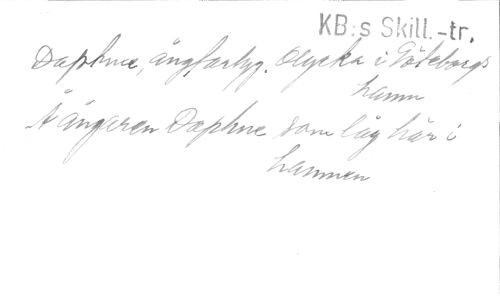 KB:s Skill.-tr.
Daphne, ångfartyg. Olycka i Göteborgs
hamn
Ångaren Daphne som låg här i
hamnen